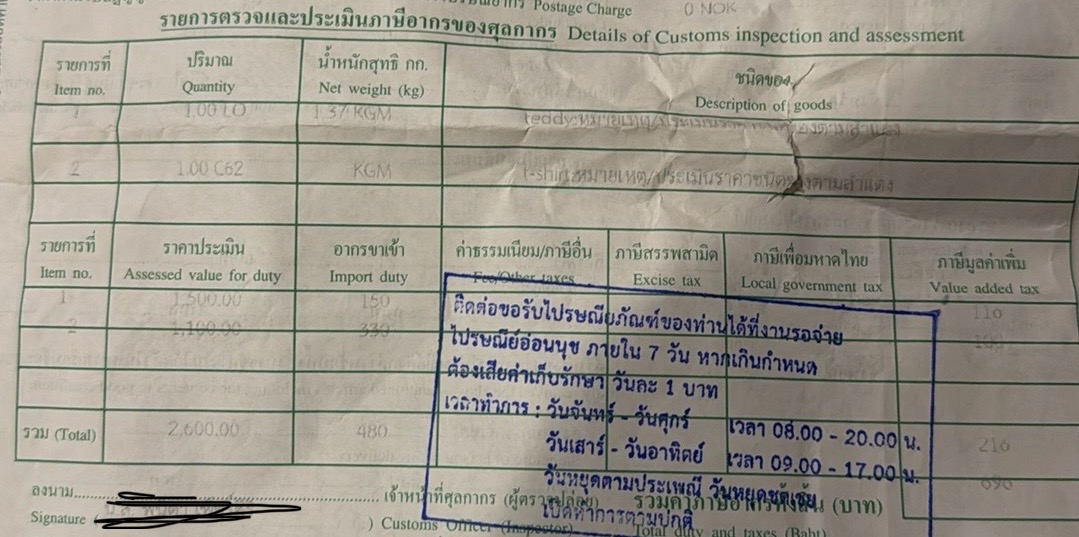 Postage Charge 0 NOK
รายการตรวจและประเมินภาษีอากรของศุลกากร Details of Customs inspection and assessment
รายการที่ ปริมาณ น้ำหนักสุทธิ กก. ชนิดของ
Item no. Quantity Net weight (kg) Description of goods
1 1.00 LO 1.37 KGM teddy:หมายเหตุ/ประเมินราคา ตามสำแดง
2 1.00 C62 KGM t-shirt:หมายเหตุ/ประเมินราคาชนิดของตามสำแดง
รายการที่ ราคาประเมิน อากรขาเข้า ค่าธรรมเนียม/ภาษีอื่น ภาษีสรรพสามิต ภาษีเพื่อมหาดไทย ภาษีมูลค่าเพิ่ม
Item no. Assessed value for duty Import duty Fee/Other taxes Excise tax Local government tax Value added tax
1 1,500.00 150 116
2 1,100.00 330 100
รวม (Total) 2,600.00 480 216
696
ติดต่อขอรับไปรษณียภัณฑ์ของท่านได้ที่งานรอจ่าย
ไปรษณีย์อ่อนนุช ภายใน 7 วัน หากเกินกำหนด
ต้องเสียค่าเก็บรักษา วันละ 1 บาท
เวลาทำการ : วันจันทร์ - วันศุกร์ เวลา 08.00 - 20.00 น.
วันเสาร์ - วันอาทิตย์ เวลา 09.00 - 17.00 น.
วันหยุดตามประเพณี วันหยุดชดเชย
เปิดทำการตามปกติ
ลงนาม เจ้าหน้าที่ศุลกากร (ผู้ตรวจปล่อย) รวมค่าภาษีอากรทั้งสิ้น (บาท)
Signature ( ) Customs Officer (Inspector) Total duty and taxes (Baht)